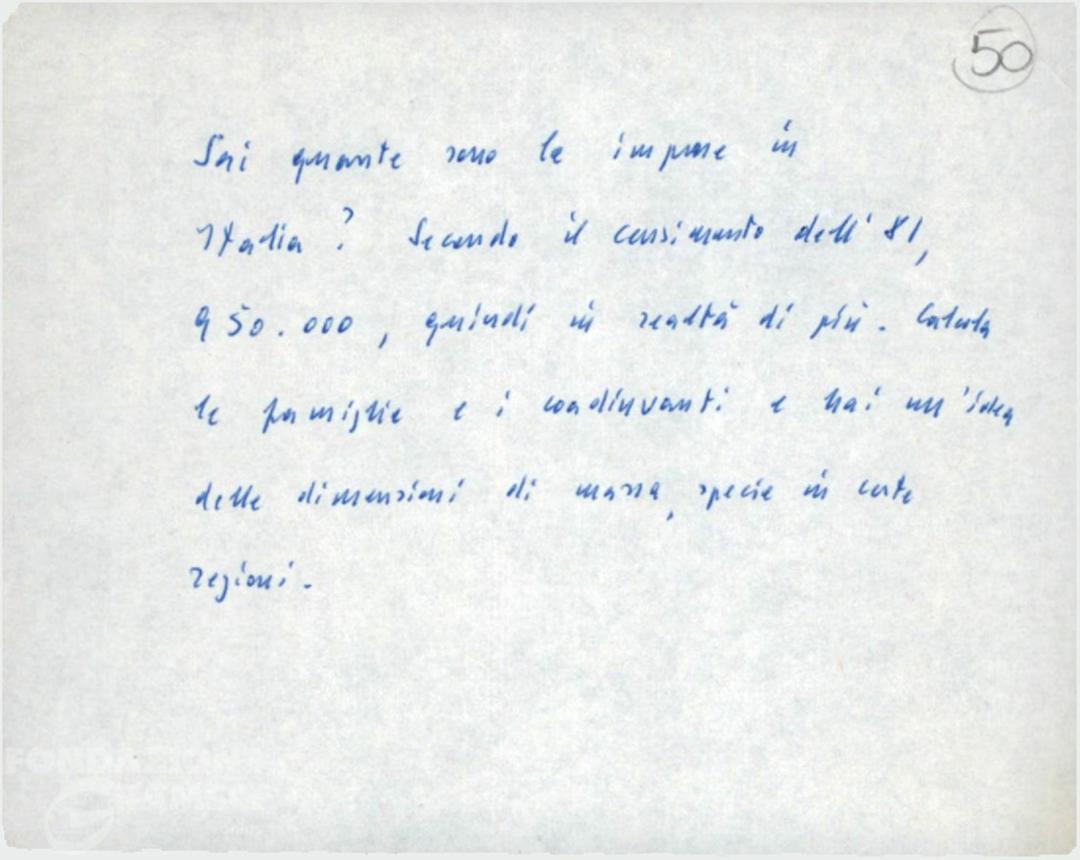 50
Sai quante sono le imprese in
Italia? Secondo il censimento dell'81,
950.000, quindi in realtà di più. Calcola
le famiglie e i coadiuvanti e hai un'idea
delle dimensioni di massa, specie in certe
regioni.
FONDAZIONE